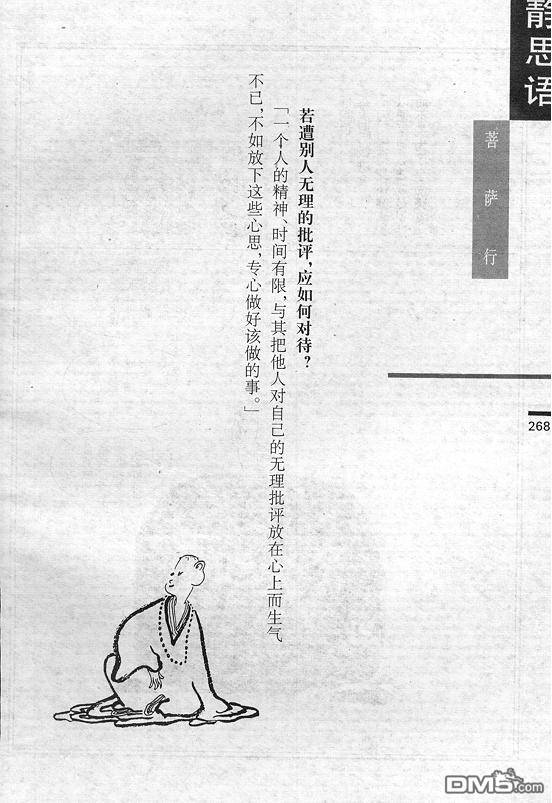 静思语
菩萨行
268
若遭别人无理的批评，应如何对待？
「一个人的精神、时间有限，与其把他人对自己的无理批评放在心上而生气
不已，不如放下这些心思，专心做好该做的事。」
DM5.com